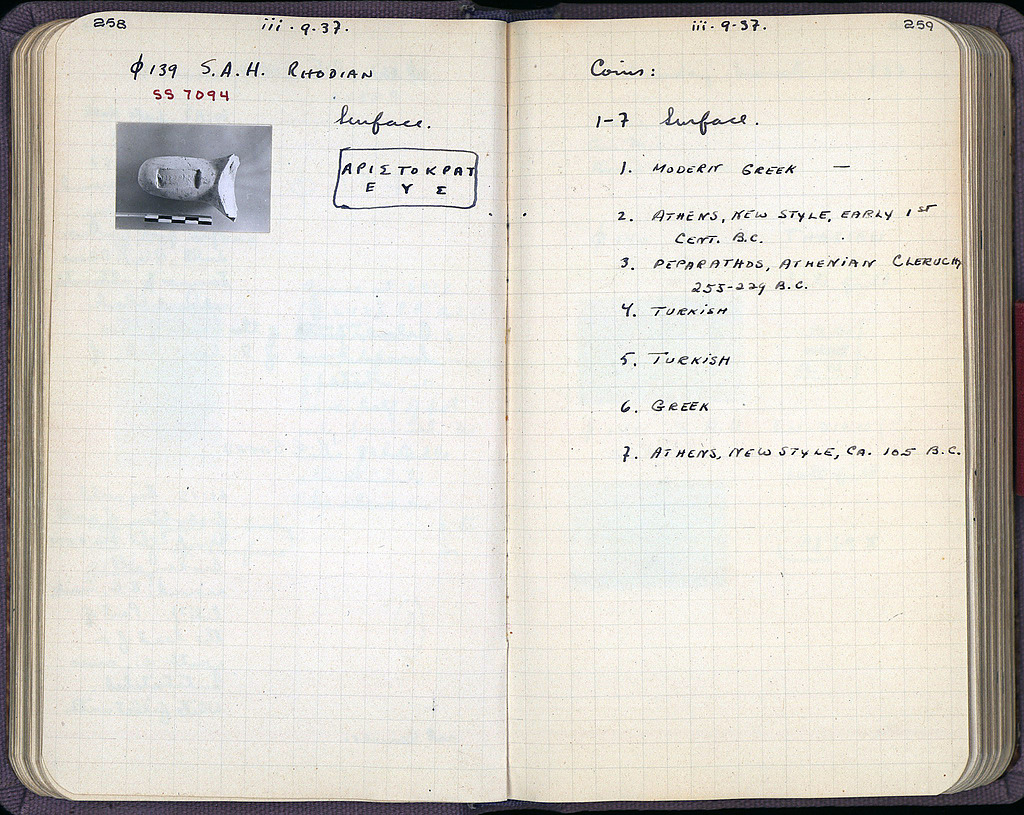 258
iii · 9 · 37.
φ 139 S.A.H. RHODIAN
SS 7094
Surface.
ΑΡΙΣΤΟΚΡΑΤ
Ε Υ Σ
iii · 9 · 37.
259
Coins:
1-7 Surface.
1. MODERN GREEK —
2. ATHENS, NEW STYLE, EARLY 1ST
CENT. B.C.
3. PEPARATHOS, ATHENIAN CLERUCHY
255-229 B.C.
4. TURKISH
5. TURKISH
6. GREEK
7. ATHENS, NEW STYLE, CA. 105 B.C.